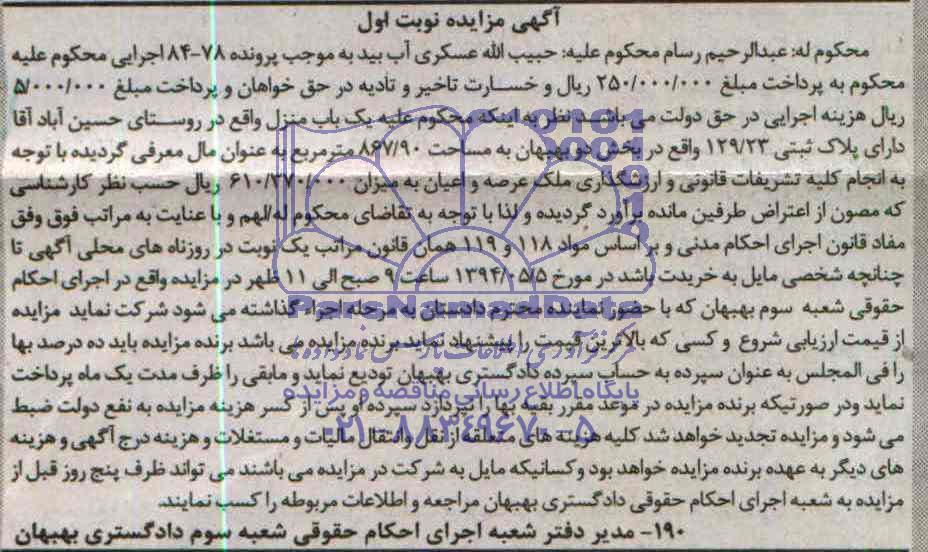 آگهی مزایده نوبت اول
محکوم له: عبدالرحیم رسام محکوم علیه: حبیب الله عسکری آب بید به موجب پرونده ۷۸-۸۴ اجرایی محکوم علیه
محکوم به پرداخت مبلغ ۲۵۰/۰۰۰/۰۰۰ ریال و خسارت تاخیر و تادیه در حق خواهان و پرداخت مبلغ ۵/۰۰۰/۰۰۰
ریال هزینه اجرایی در حق دولت می باشد نظر به اینکه محکوم علیه یک باب منزل واقع در روستای حسین آباد آقا
دارای پلاک ثبتی ۱۲۹/۲۳ واقع در بخش دو بهبهان به مساحت ۸۶۷/۹۰ مترمربع به عنوان مال معرفی گردیده با توجه
به انجام کلیه تشریفات قانونی و ارزشگذاری ملک عرصه و اعیان به میزان ۶۱۰/۲۷۰/۰۰۰ ریال حسب نظر کارشناسی
که مصون از اعتراض طرفین مانده برآورد گردیده و لذا با توجه به تقاضای محکوم له/لهم و با عنایت به مراتب فوق وفق
مفاد قانون اجرای احکام مدنی و بر اساس مواد ۱۱۸ و ۱۱۹ همان قانون مراتب یک نوبت در روزناه های محلی آگهی تا
چنانچه شخصی مایل به خریدت باشد در مورخ ۱۳۹۴/۰۵/۵ ساعت ۹ صبح الی ۱۱ ظهر در مزایده واقع در اجرای احکام
حقوقی شعبه سوم بهبهان که با حضور نماینده محترم دادستان به مرحله اجراء گذاشته می شود شرکت نماید مزایده
از قیمت ارزیابی شروع و کسی که بالاترین قیمت را پیشنهاد نماید برنده مزایده می باشد برنده مزایده باید ده درصد بها
را فی المجلس به عنوان سپرده به حساب سپرده دادگستری بهبهان تودیع نماید و مابقی را ظرف مدت یک ماه پرداخت
نماید ودر صورتیکه برنده مزایده در موعد مقرر بقیه بها را نپردازد سپرده او پس از کسر هزینه مزایده به نفع دولت ضبط
می شود و مزایده تجدید خواهد شد کلیه هزینه های متعلقه از نقل وانتقال مالیات و مستغلات و هزینه درج آگهی و هزینه
های دیگر به عهده برنده مزایده خواهد بود و کسانیکه مایل به شرکت در مزایده می باشند می تواند ظرف پنج روز قبل از
مزایده به شعبه اجرای احکام حقوقی دادگستری بهبهان مراجعه و اطلاعات مربوطه را کسب نمایند.
۱۹۰- مدیر دفتر شعبه اجرای احکام حقوقی شعبه سوم دادگستری بهبهان
ParsNamadData
پایگاه اطلاع رسانی مناقصه و مزایده
۰۲۱-۸۸۳۴۹۶۷۰-۵